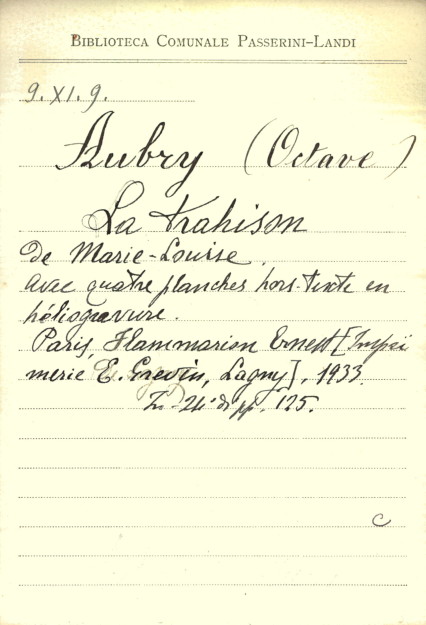 BIBLIOTECA COMUNALE PASSERINI-LANDI
9. XI. 9.
Aubry (Octave)
La trahison
de Marie-Louise.
avec quatre planches hors-texte en
héliogravure.
Paris, Flammarion Ernest [Impri
merie E. Grevin, Lagny], 1933.
In-24° di pp. 125.
C